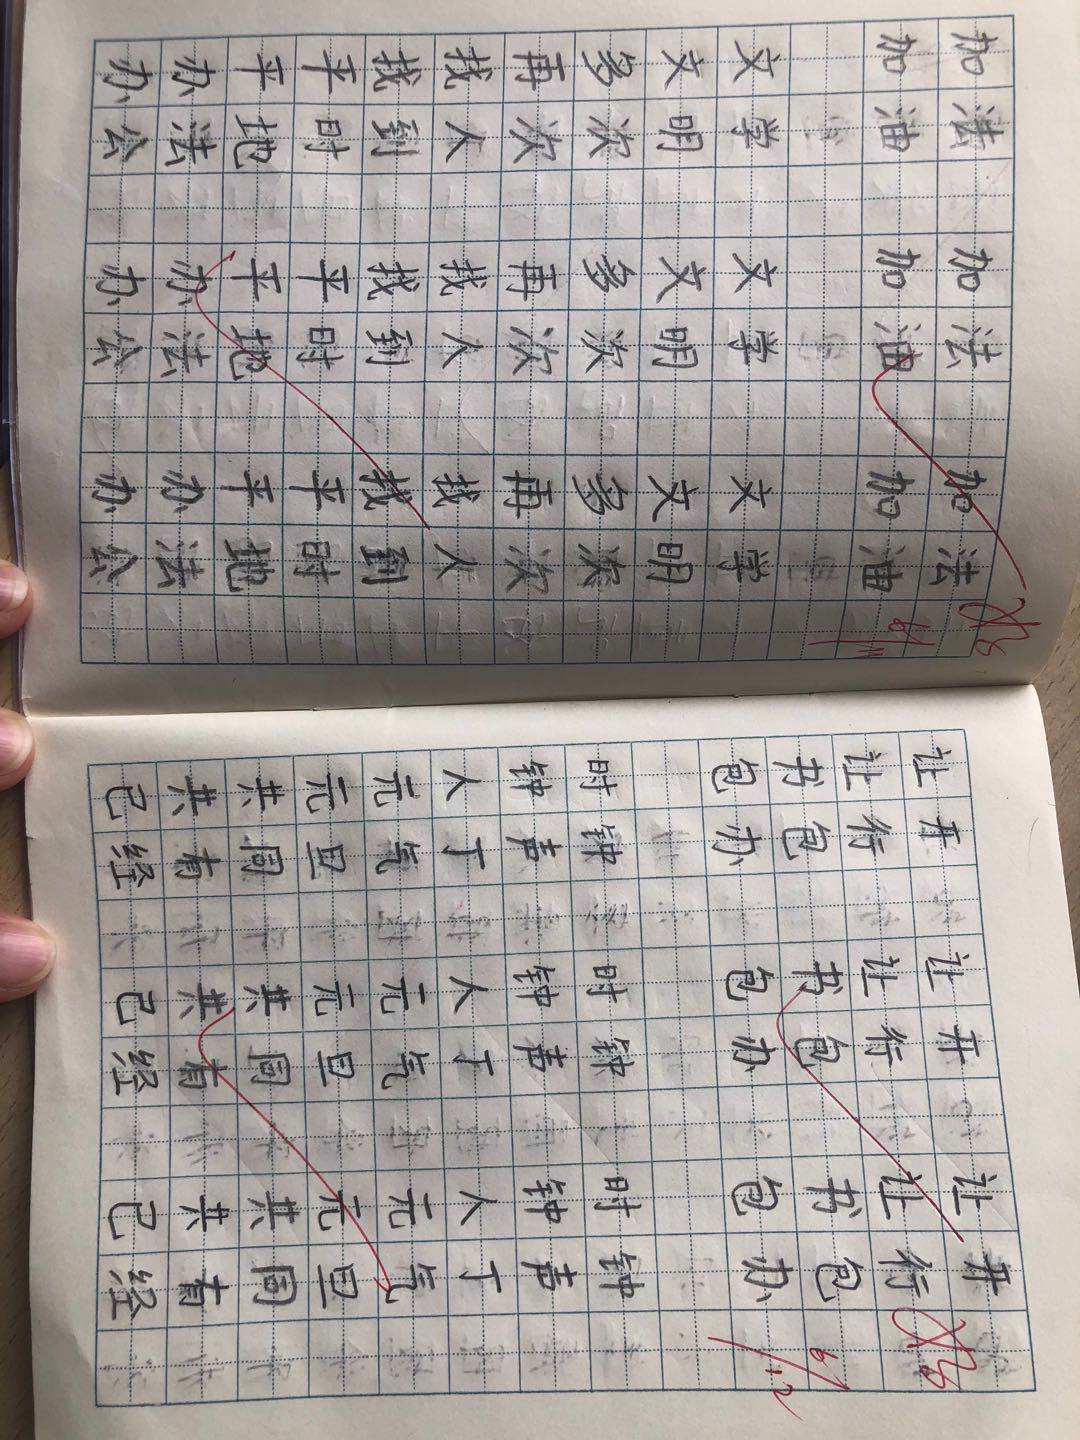 加法 加法 加法
加油 加油 加油
文学 文学 文学
文明 文明 文明
多次 多次 多次
再次 再次 再次
找人 找人 找人
找到 找到 找到
平时 平时 平时
平地 平地 平地
办法 办法 办法
办公 办公 办公
让开 让开 让开
让行 让行 让行
书包 书包 书包
包办 包办 包办
时钟 时钟 时钟
钟声 钟声 钟声
人丁 人丁 人丁
元气 元气 元气
元旦 元旦 元旦
共同 共同 共同
共有 共有 共有
已经 已经 已经